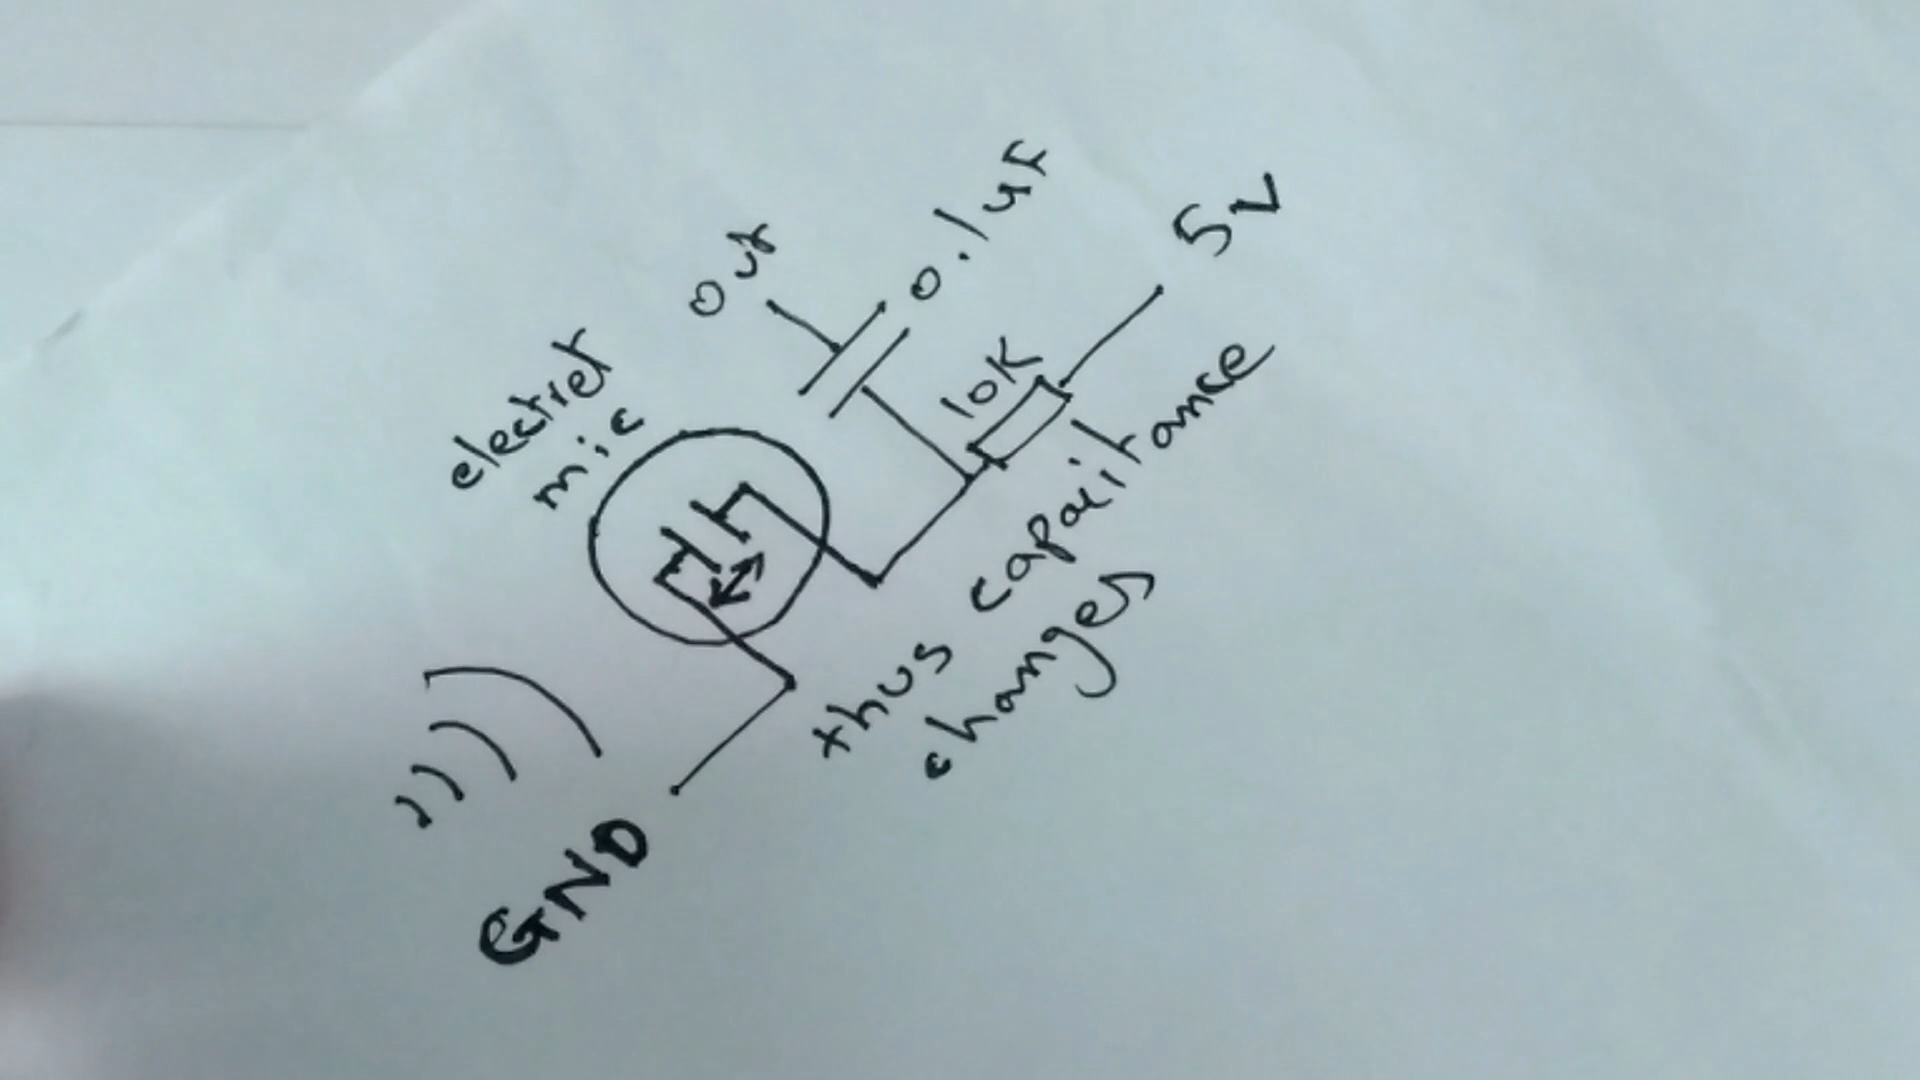 out
0.1uf
5v
electret
mic
10K
thus capacitance
changes
GND